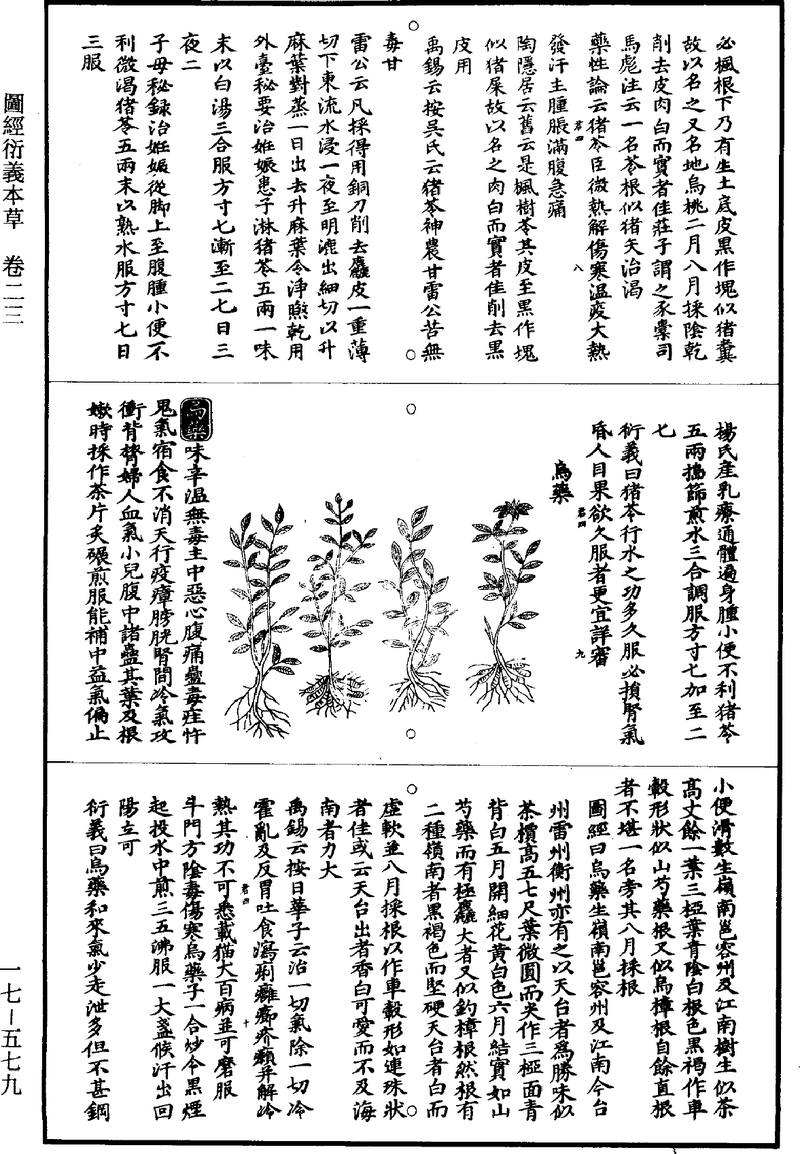 必楓根下乃有生土底皮黑作塊似猪糞
故以名之又名地烏桃二月八月採陰乾
削去皮肉白而實者佳莊子謂之豕橐司
馬彪注云一名苓根似猪矢治渴
藥性論云猪苓臣微熱解傷寒温疫大熱
發汗主腫脹滿腹急痛
陶隱居云舊云是楓樹苓其皮至黑作塊
似猪屎故以名之肉白而實者佳削去黑
皮用
禹錫云按吳氏云猪苓神農甘雷公苦無
毒甘
雷公云凡採得用銅刀削去麤皮一重薄
切下東流水浸一夜至明漉出細切以升
麻葉對蒸一日出去升麻葉令淨㬠乾用
外臺秘要治姙娠患子淋猪苓五兩一味
末以白湯三合服方寸匕漸至二匕日三
夜二
子母秘録治姙娠從脚上至腹腫小便不
利微渴猪苓五兩末以熟水服方寸匕日
三服
楊氏產乳療通體遍身腫小便不利猪苓
五兩搗篩煎水三合調服方寸匕加至二
匕
衍義曰猪苓行水之功多久服必損腎氣
昏人目果欲久服者更宜詳審
烏藥
烏藥味辛温無毒主中惡心腹痛蠱毒疰忤
鬼氣宿食不消天行疫瘴膀胱腎間冷氣攻
衝背膂婦人血氣小兒腹中諸蠱其葉及根
嫩時採作茶片炙碾煎服能補中益氣偏止
小便滑數生嶺南邕容州及江南樹生似茶
高丈餘一葉三椏葉青陰白根色黑褐作車
轂形狀似山芍藥根又似烏樟根自餘直根
者不堪一名旁其八月採根
圖經曰烏藥生嶺南邕容州及江南今台
州雷州衡州亦有之以天台者爲勝味似
茶檟高五七尺葉微圓而尖作三椏面青
背白五月開細花黄白色六月結實如山
芍藥而有極麤大者又似釣樟根然根有
二種嶺南者黑褐色而堅硬天台者白而
虛軟並八月採根以作車轂形如連珠狀
者佳或云天台出者香白可愛而不及海
南者力大
禹錫云按日華子云治一切氣除一切冷
霍亂及反胃吐食瀉痢癰癤疥癩并解冷
熱其功不可悉載猫犬百病並可磨服
斗門方陰毒傷寒烏藥子一合炒令黑煙
起投水中煎三五沸服一大盞候汗出回
陽立可
衍義曰烏藥和來氣少走泄多但不甚鋼
圖經衍義本草　卷二三
一七—五七九